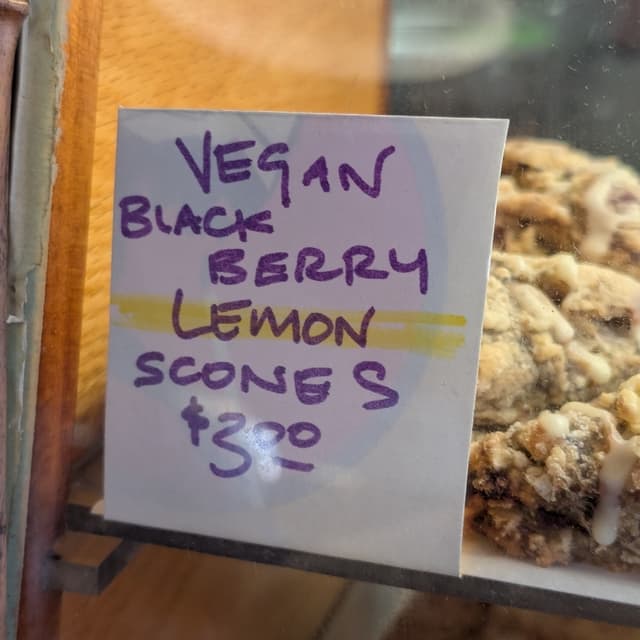 VEGAN
BLACK
BERRY
LEMON
SCONES
$3.00